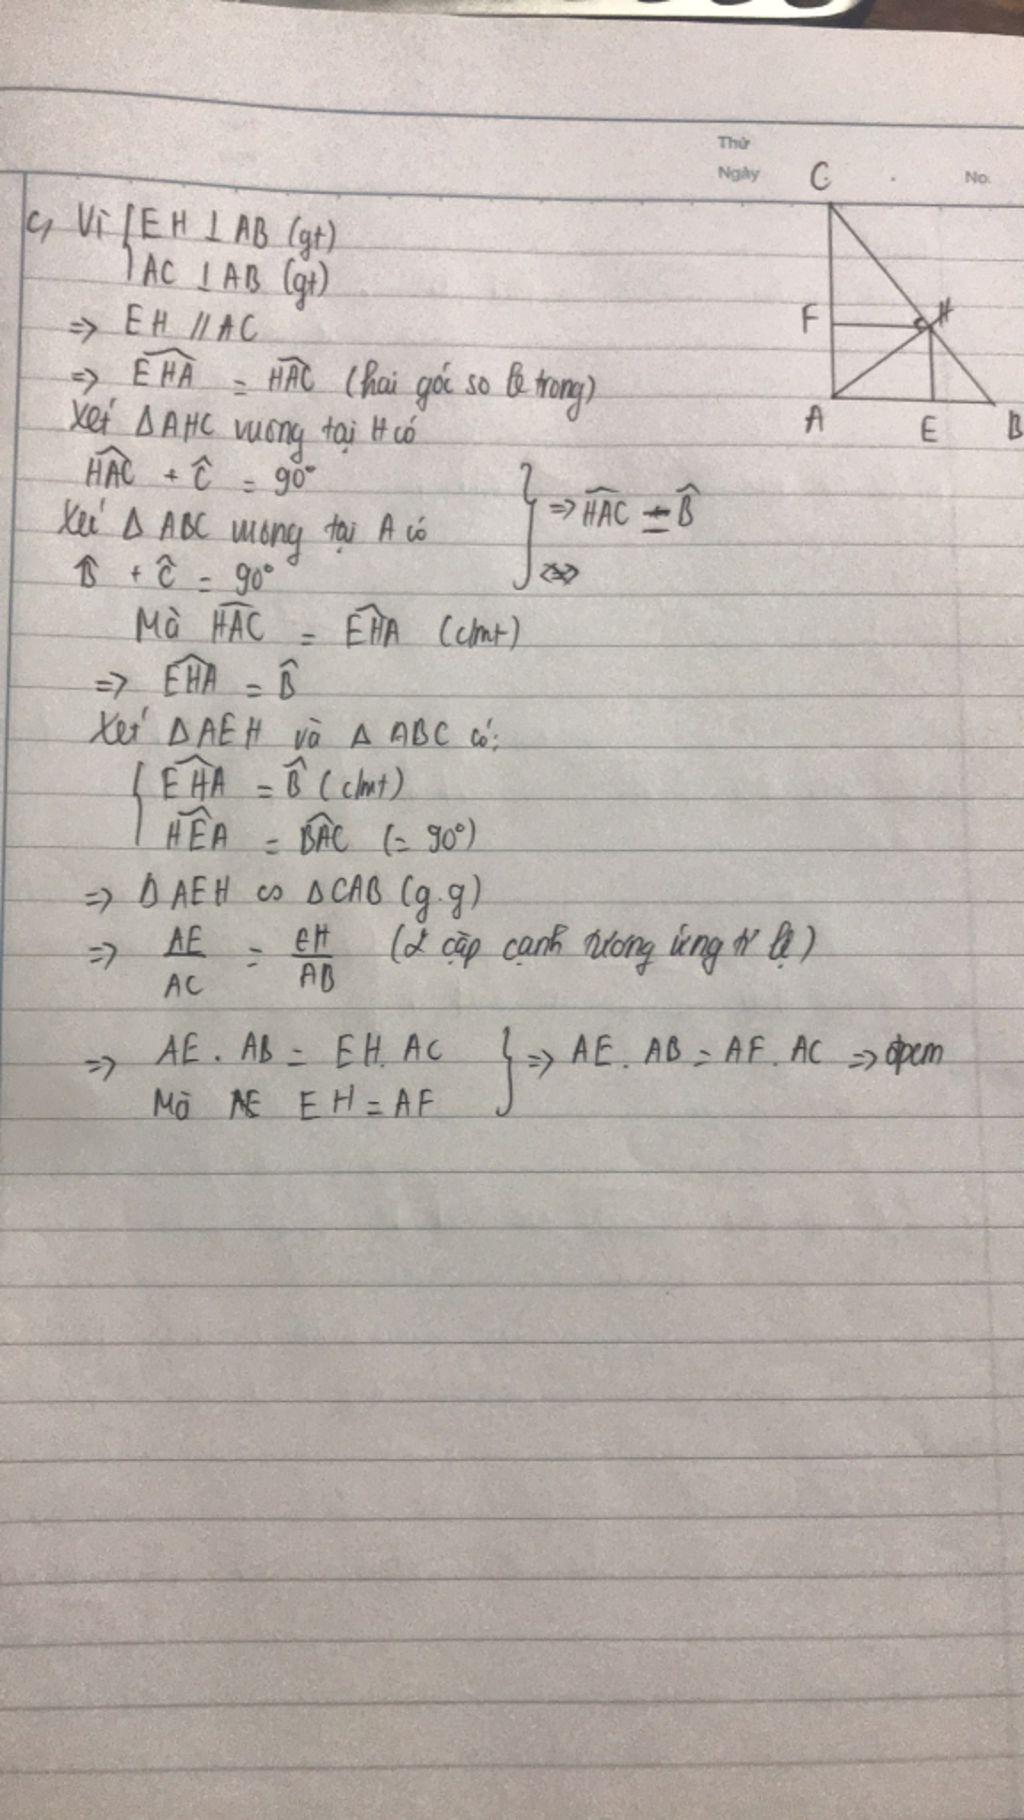 Thứ
Ngày
No.
C
F
H
A
E
B
c, Vì { EH ⊥ AB (gt)
AC ⊥ AB (gt)
=> EH // AC
=> \widehat{EHA} = \widehat{HAC} (hai góc so le trong)
Xét ΔAHC vuông tại H có
\widehat{HAC} + \widehat{C} = 90°
Xét Δ ABC vuông tại A có
} => \widehat{HAC} = \widehat{B}
\widehat{B} + \widehat{C} = 90°
Mà \widehat{HAC} = \widehat{EHA} (cmt)
=> \widehat{EHA} = \widehat{B}
Xét ΔAEH và Δ ABC có:
{ \widehat{EHA} = \widehat{B} (cmt)
\widehat{HEA} = \widehat{BAC} (= 90°)
=> ΔAEH ∽ ΔCAB (g.g)
=> AE/AC = EH/AB (2 cặp cạnh tương ứng tỉ lệ)
=> AE . AB = EH . AC } => AE . AB = AF . AC => đpcm
Mà AE EH = AF